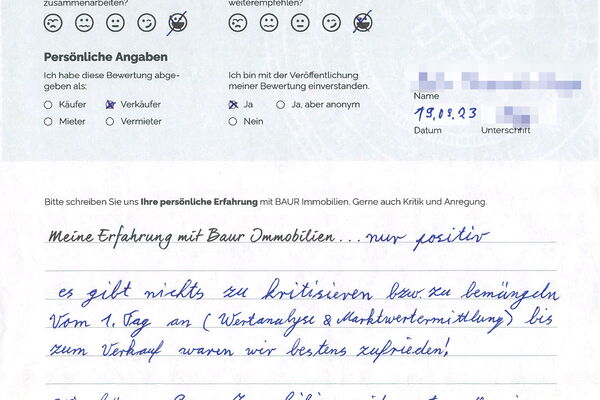 zusammenarbeiten?
weiterempfehlen?
Persönliche Angaben
Ich habe diese Bewertung abge-
geben als:
Käufer
Verkäufer
Mieter
Vermieter
Ich bin mit der Veröffentlichung
meiner Bewertung einverstanden.
Ja
Ja, aber anonym
Nein
Name
19.09.23
Datum
Unterschrift
Bitte schreiben Sie uns Ihre persönliche Erfahrung mit BAUR Immobilien. Gerne auch Kritik und Anregung.
Meine Erfahrung mit Baur Immobilien... nur positiv
es gibt nichts zu kritisieren bzw. zu bemängeln
Vom 1. Tag an (Wertanalyse & Marktwertermittlung) bis
zum Verkauf waren wir bestens zufrieden!